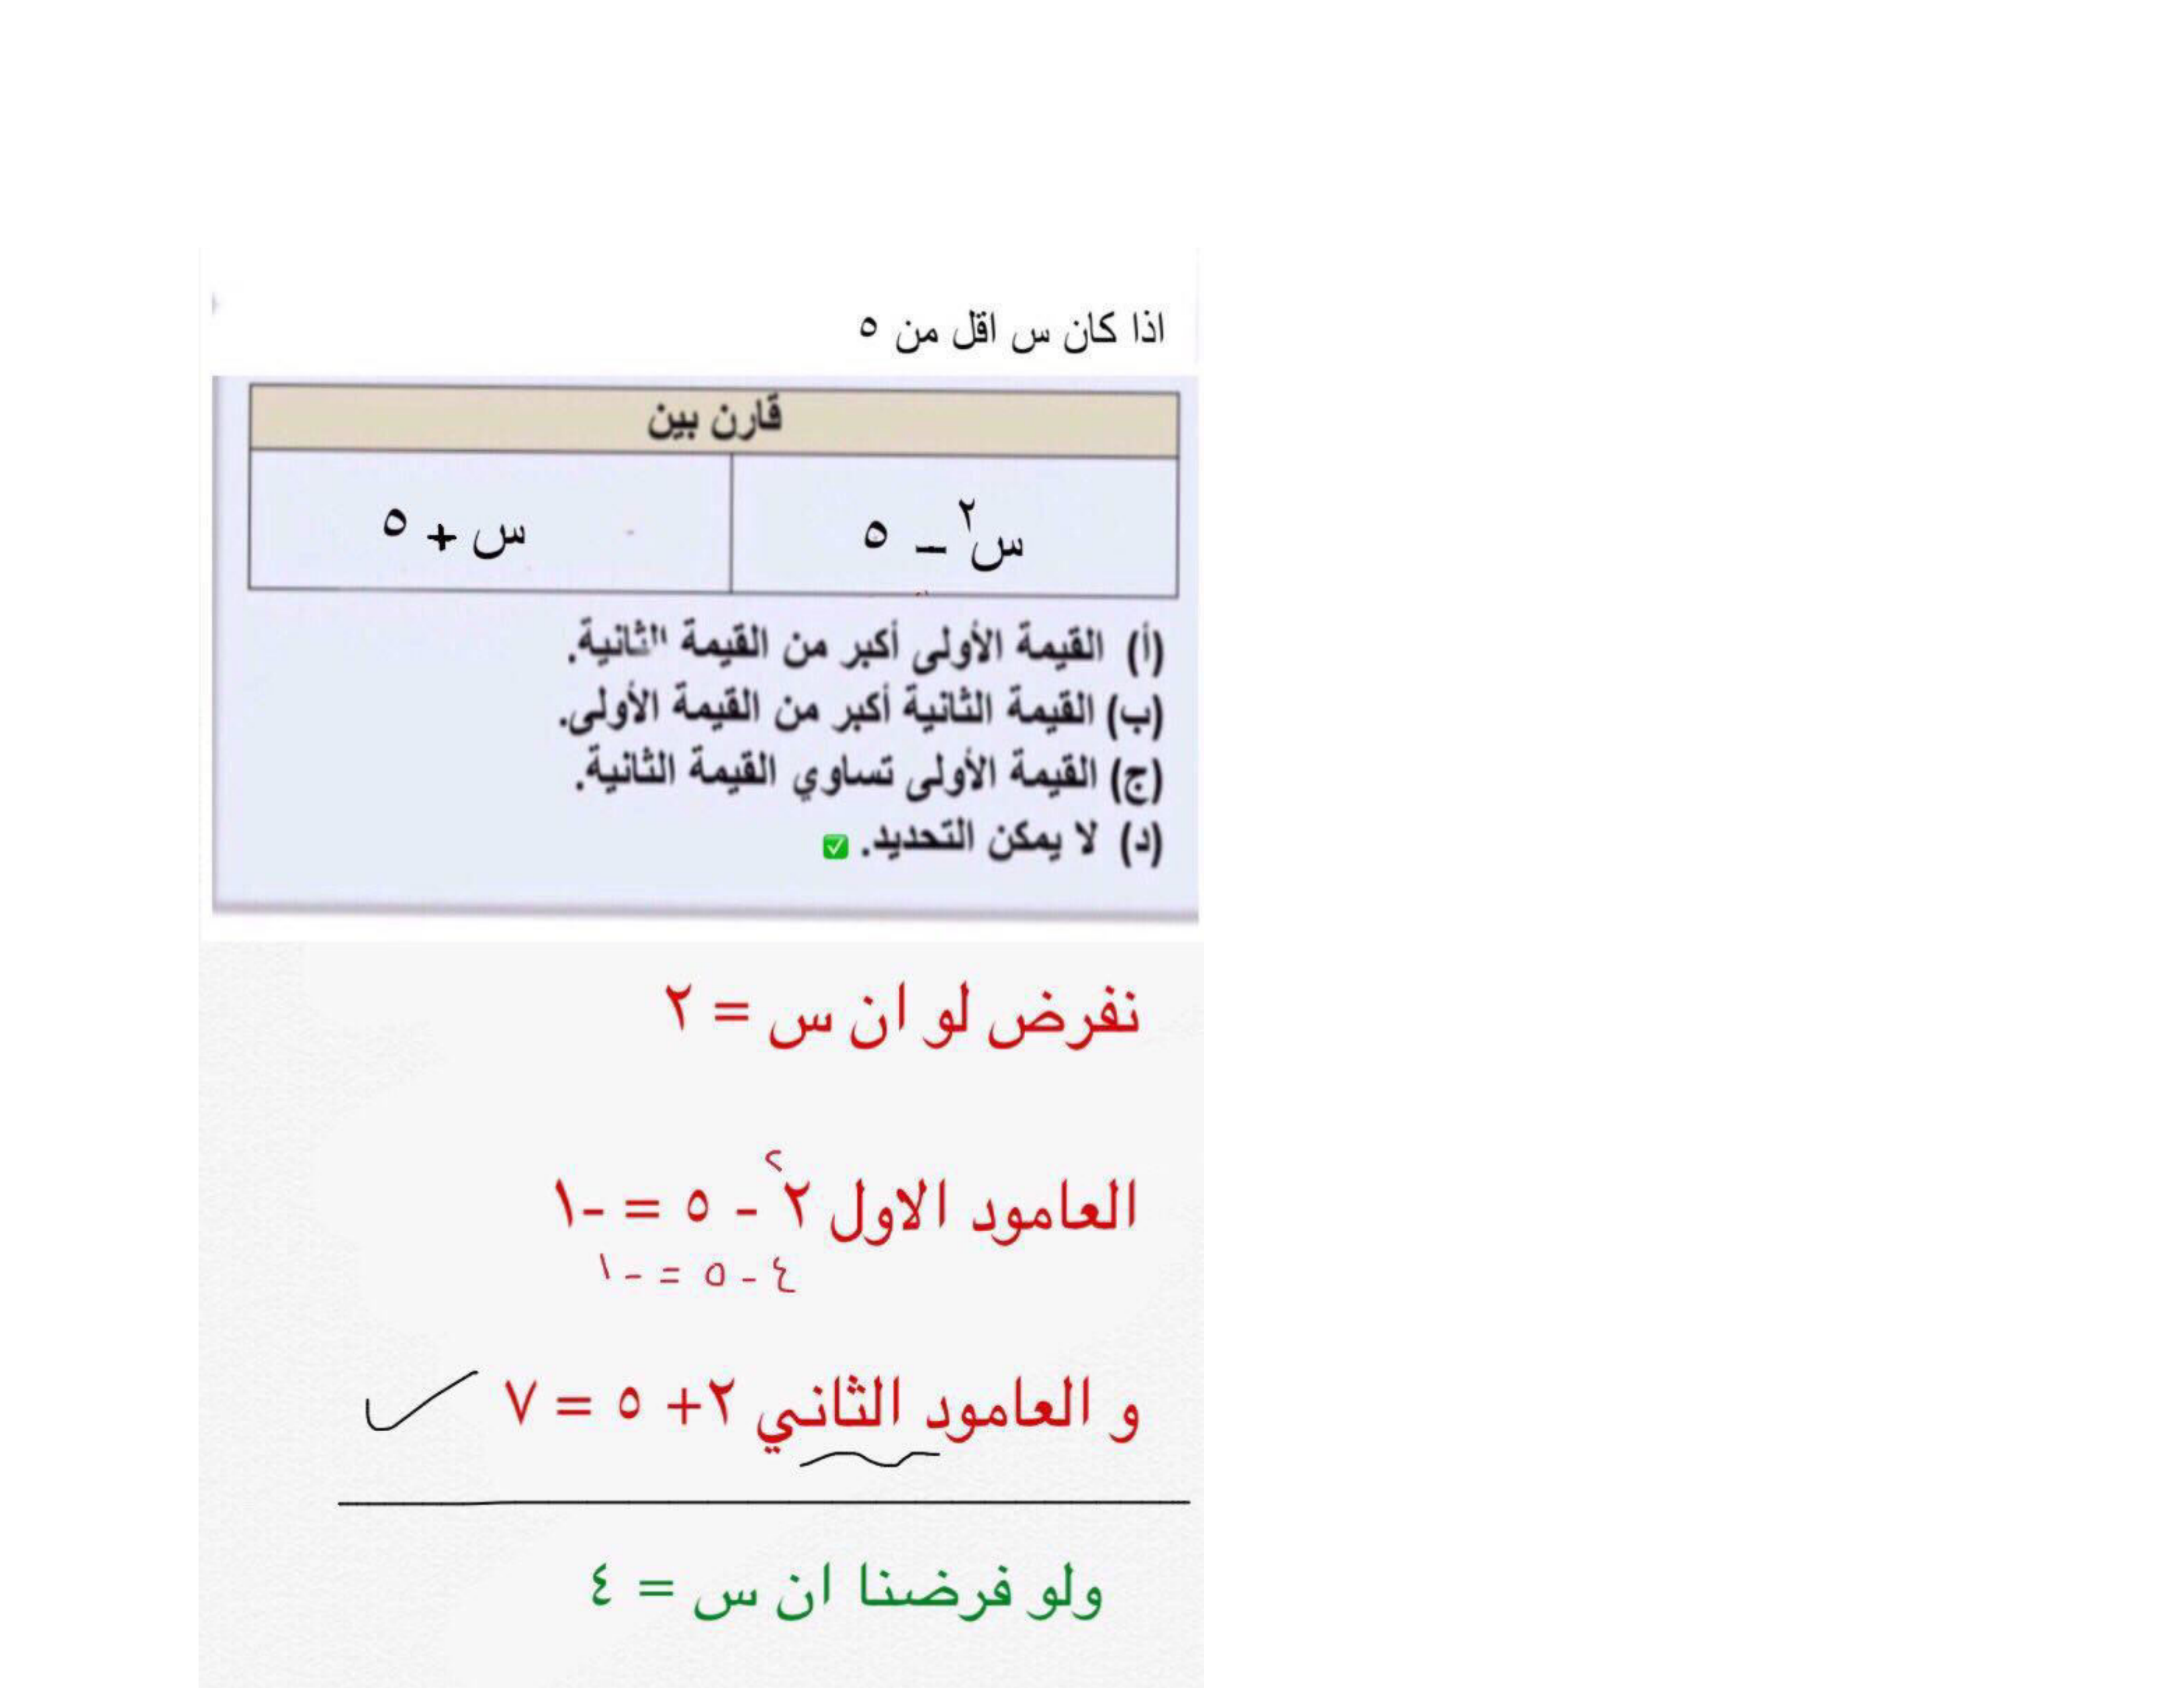 اذا كان س اقل من ٥
قارن بين
س٢ – ٥
س + ٥
(أ) القيمة الأولى أكبر من القيمة الثانية.
(ب) القيمة الثانية أكبر من القيمة الأولى.
(ج) القيمة الأولى تساوي القيمة الثانية.
(د) لا يمكن التحديد. ✅
نفرض لو ان س = ٢
العامود الاول ٢٢ - ٥ = -١
٤ - ٥ = -١
و العامود الثاني ٢+ ٥ = ٧
ولو فرضنا ان س = ٤